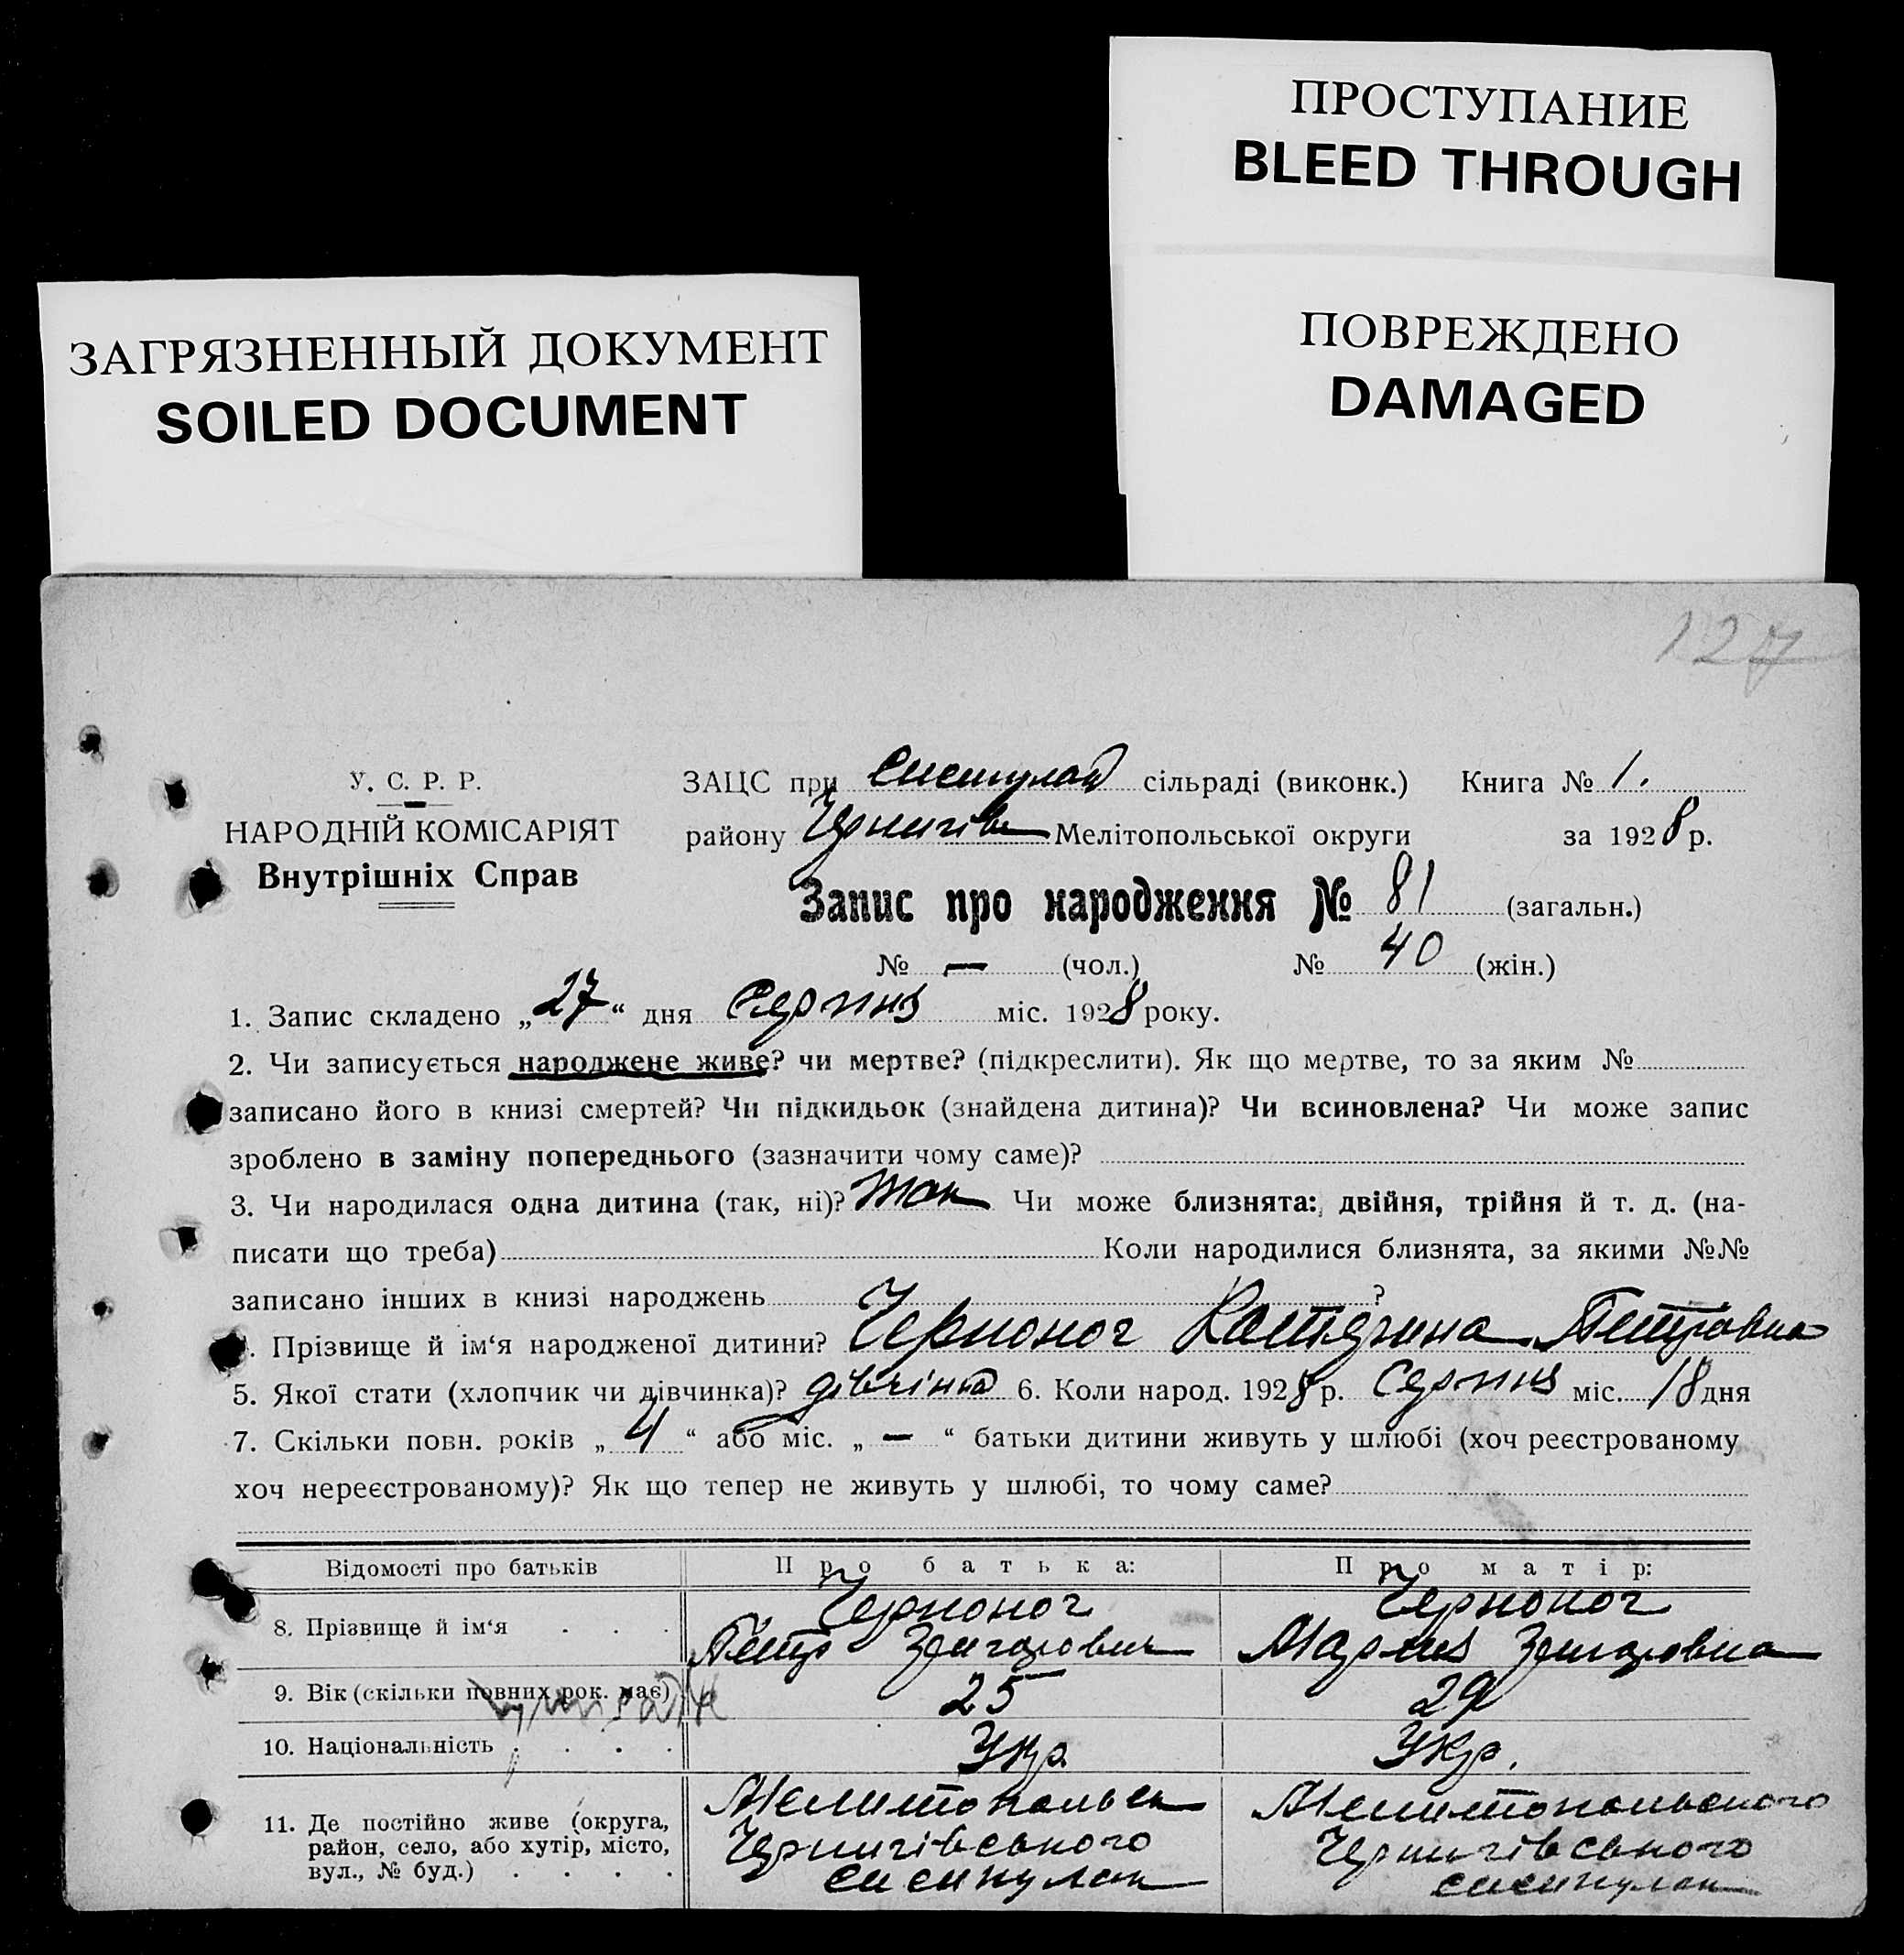 ПРОСТУПАНИЕ
BLEED THROUGH
ЗАГРЯЗНЕННЫЙ ДОКУМЕНТ
SOILED DOCUMENT
ПОВРЕЖДЕНО
DAMAGED
127
У. С. Р. Р.
НАРОДНІЙ КОМІСАРІЯТ
Внутрішніх Справ
ЗАЦС при сільраді (виконк.) Книга № 1.
району Чернигівс Мелітопольської округи за 1928 р.
Запис про народження № 81 (загальн.)
№ — (чол.) № 40 (жін.)
1. Запис складено „27“ дня Серпня міс. 1928 року.
2. Чи записується народжене живе? чи мертве? (підкреслити). Як що мертве, то за яким №
записано його в книзі смертей? Чи підкидьок (знайдена дитина)? Чи всиновлена? Чи може запис
зроблено в заміну попереднього (зазначити чому саме)?
3. Чи народилася одна дитина (так, ні)? так Чи може близнята: двійня, трійня й т. д. (на-
писати що треба) Коли народилися близнята, за якими №№
записано інших в книзі народжень ?
. Прізвище й ім‘я народженої дитини? Черноног Катерина Петровна
5. Якої стати (хлопчик чи дівчинка)? дівчінка 6. Коли народ. 1928 р. Серпня міс. 18 дня
7. Скільки повн. років „4“ або міс. „—“ батьки дитини живуть у шлюбі (хоч реєстрованому
хоч нереєстрованому)? Як що тепер не живуть у шлюбі, то чому саме?
Відомості про батьків Про батька: Про матір:
8. Прізвище й ім‘я . . . Черноног Черноног
Петр Григорович Мария Григоровна
9. Вік (скільки повних рок. має) 25 29
10. Національність . . . . Укр. Укр.
11. Де постійно живе (округа, район, село, або хутір, місто, вул., № буд.) . . . .
Мелитопольск Мелитопольского
Чернигівського Чернигівського